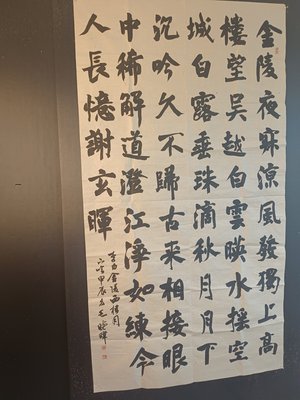 金陵夜寂涼風發獨上高
樓望吳越白雲暎水摇空
城白露垂珠滴秋月月下
沉吟久不歸古来相接眼
中稀解道澄江淨如練令
人長憶謝玄暉
李白金陵西樓月
下吟甲辰